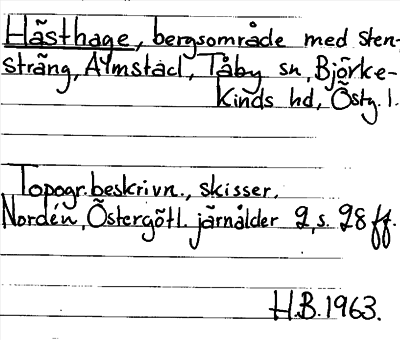 Hästhage, bergsområde med sten-
sträng, Almstad, Tåby sn, Björke-
kinds hd, Östg. l.
Topogr. beskrivn., skisser.
Nordén, Östergötl. järnålder 2, s. 28 ff.
H.B. 1963.